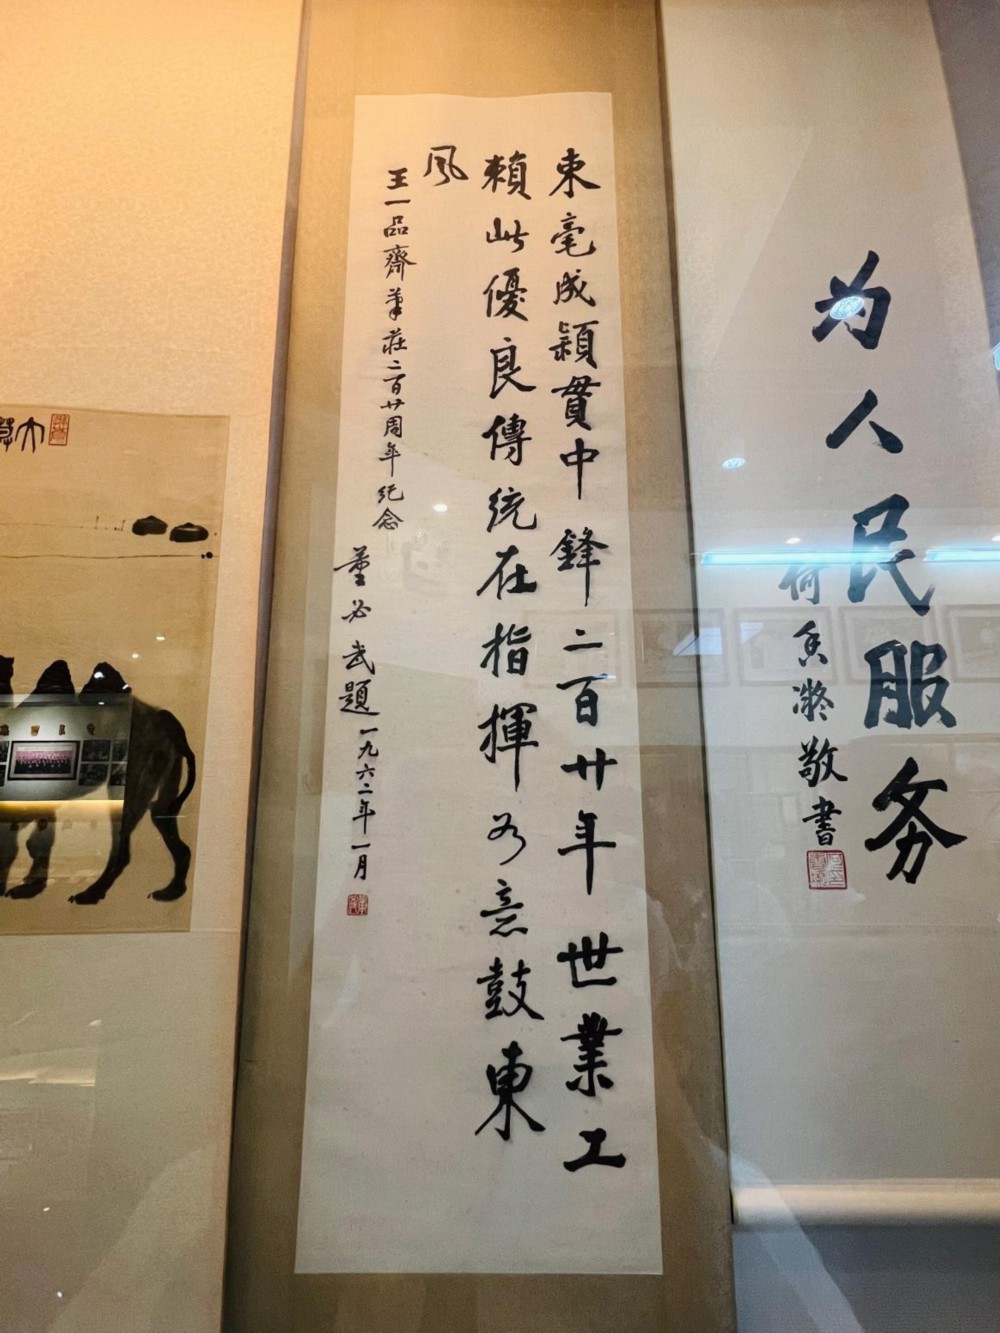 为人民服务
何香凝敬書
束毫成穎貫中鋒二百廿年世業工
賴此優良傳統在指揮如意鼓東
風
王一品齋筆莊二百廿周年纪念
董必武題一九六二年一月